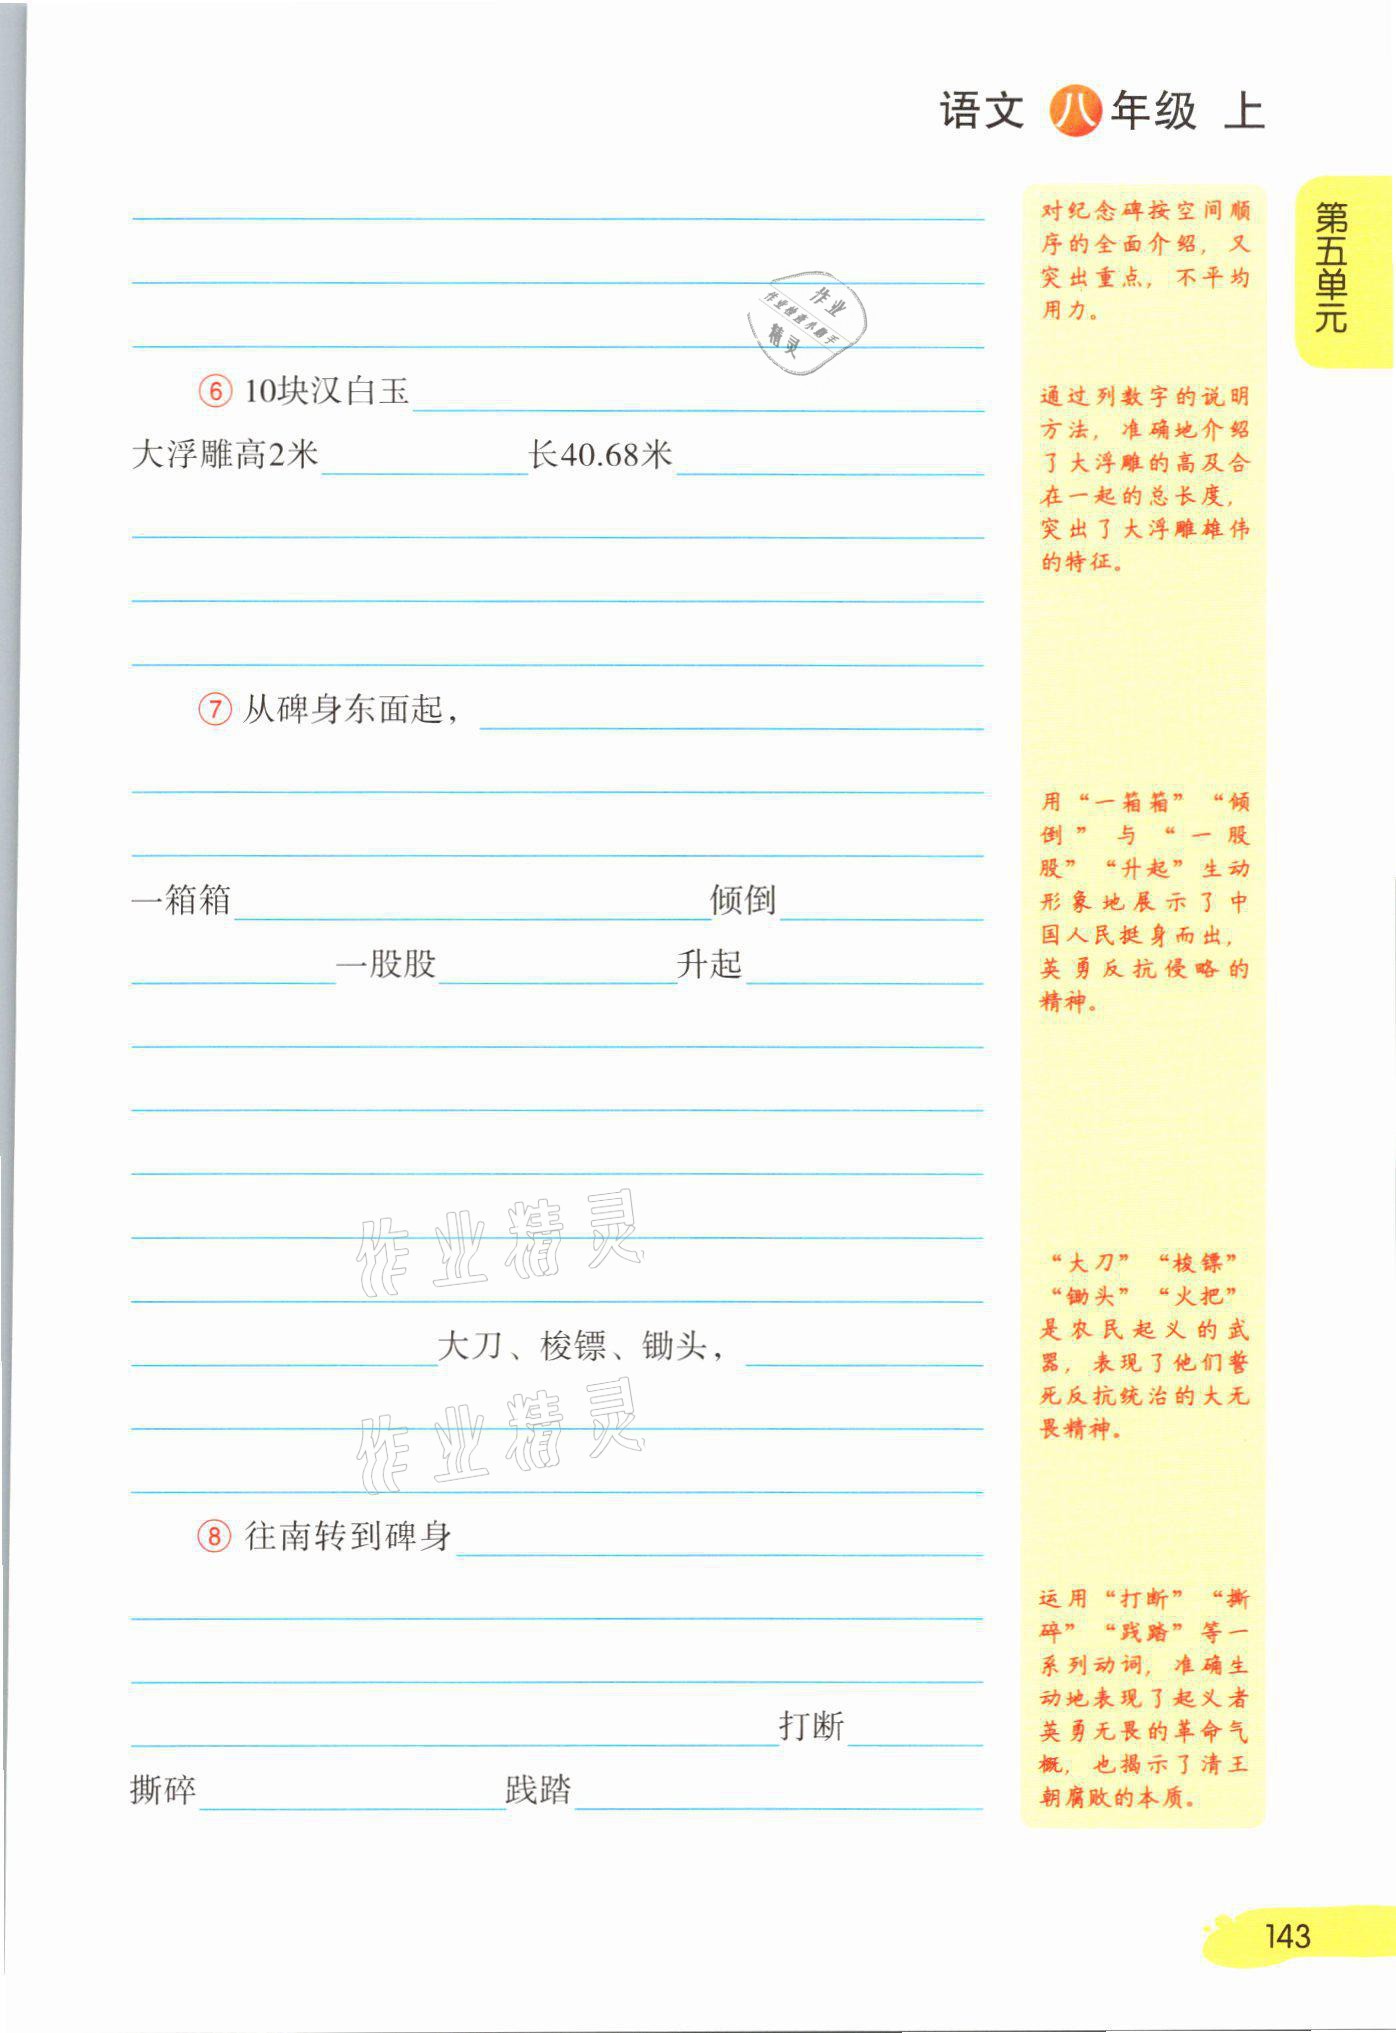 语文 八 年级 上
第五单元
对纪念碑按空间顺
序的全面介绍，又
突出重点，不平均
用力。
作业
作业检查小助手
精灵
⑥ 10块汉白玉
大浮雕高2米 长40.68米
通过列数字的说明
方法，准确地介绍
了大浮雕的高及合
在一起的总长度，
突出了大浮雕雄伟
的特征。
⑦ 从碑身东面起，
一箱箱 倾倒
一股股 升起
用“一箱箱”“倾
倒”与“一股
股”“升起”生动
形象地展示了中
国人民挺身而出，
英勇反抗侵略的
精神。
作业精灵
大刀、梭镖、锄头，
作业精灵
“大刀”“梭镖”
“锄头”“火把”
是农民起义的武
器，表现了他们誓
死反抗统治的大无
畏精神。
⑧ 往南转到碑身
打断
撕碎 践踏
运用“打断”“撕
碎”“践踏”等一
系列动词，准确生
动地表现了起义者
英勇无畏的革命气
概，也揭示了清王
朝腐败的本质。
143